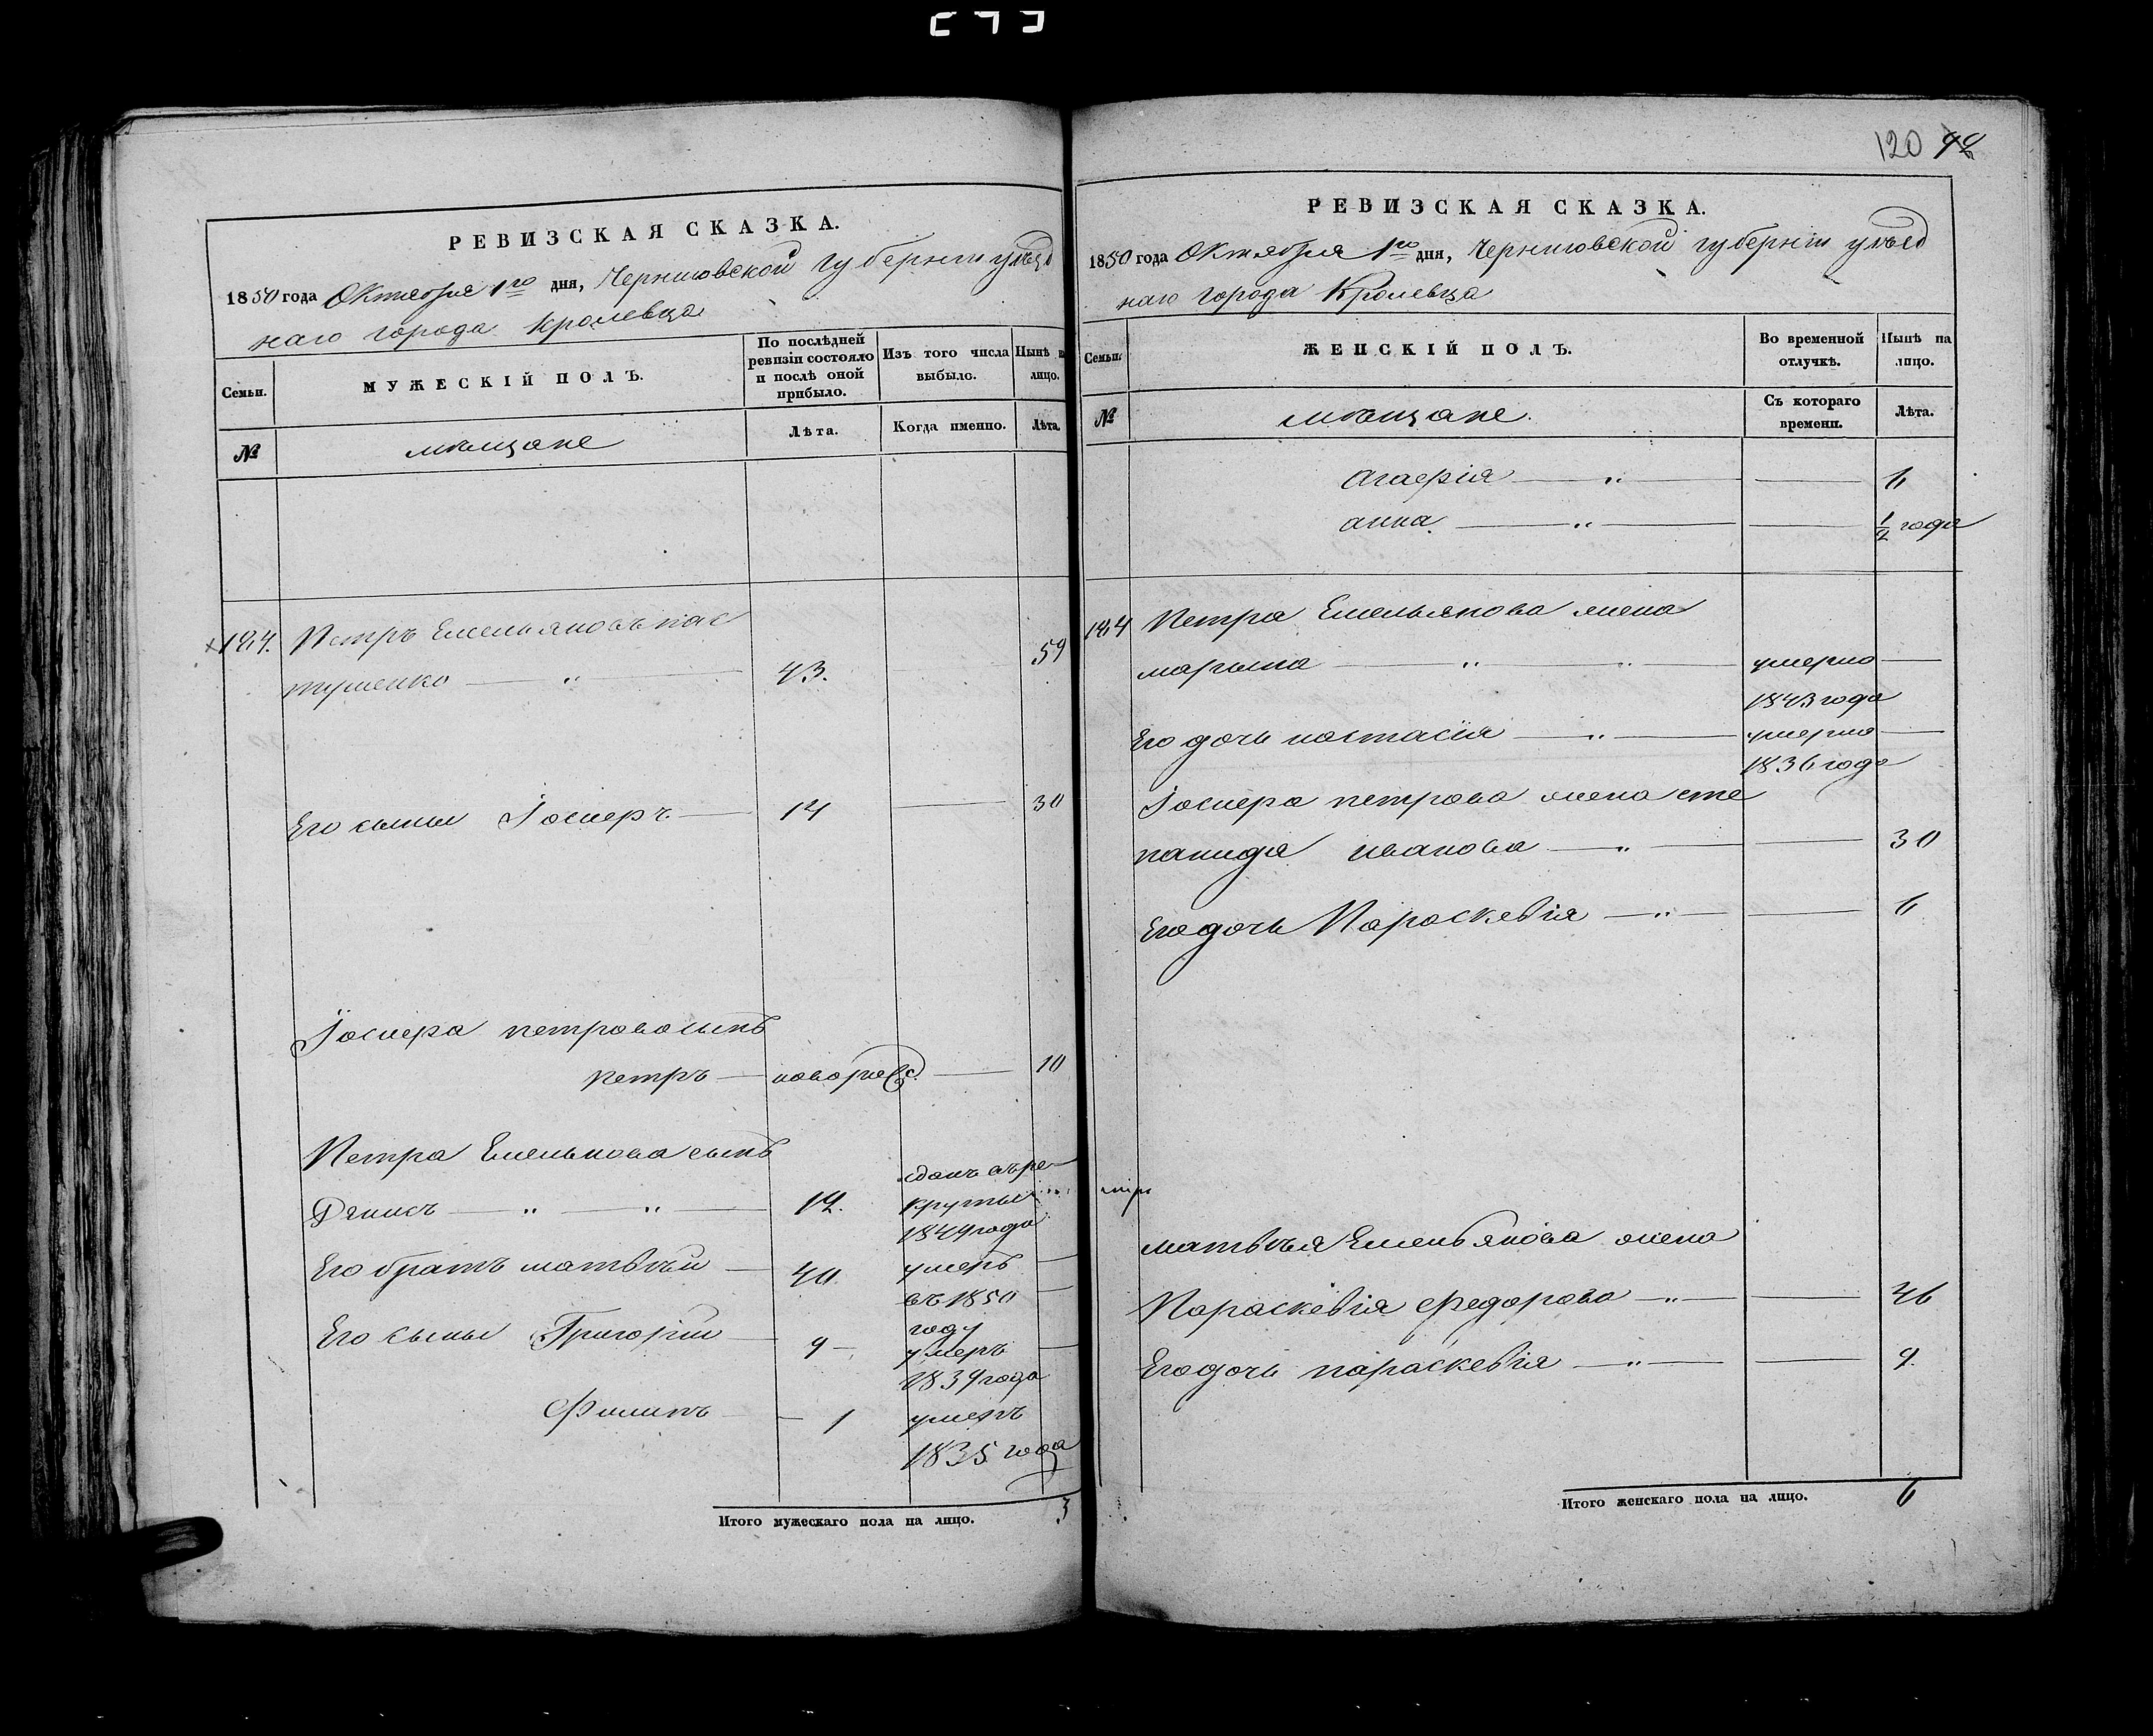 120 92
РЕВИЗСКАЯ СКАЗКА.
1850 года Октября 1го дня, Черниговской губерніи уѣзд
наго города Кролевца
Семьи.
МУЖЕСКІЙ ПОЛЪ.
По послѣдней
ревизіи состояло
и послѣ оной
прибыло.
Изъ того числа
выбыло.
Нынѣ н
лицо.
№
мѣщане
Лѣта.
Когда именно.
Лѣта.
184. Петръ Емельяновъ пас
тушенко 43. 59
Его сыны Іосиеръ 14 30
Іосиера петрова сынъ
петръ 10
Петра Емельянова сынъ
Дянисъ 12. сданъ въ ре
круты
1849 года
Его братъ матвѣй 40 умеръ
въ 1850
году
Его сыны Григорій 9 умеръ
1839 года
Филипъ 1 умеръ
1835 года
Итого мужескаго пола на лицо. 3
РЕВИЗСКАЯ СКАЗКА.
1850 года Октября 1го дня, Черниговской губерніи уѣзд
наго города Кролевца
Семьи.
ЖЕНСКІЙ ПОЛЪ.
Во временной
отлучкѣ.
Нынѣ на
лицо.
№
мѣщане.
Съ котораго
времени.
Лѣта.
Агаерія 6
анна 1/2 года
184 Петра Емельянова жена
марьина умерла
1843 года
Его дочь настасія умерла
1836 года
Іосиера петрова жена сте
панида иванова 30
Его дочь Параскевія 6
матвѣя Емельянова жена
Параскевія Федорова 46
Его дочь параскевія 9.
Итого женскаго пола на лицо. 6